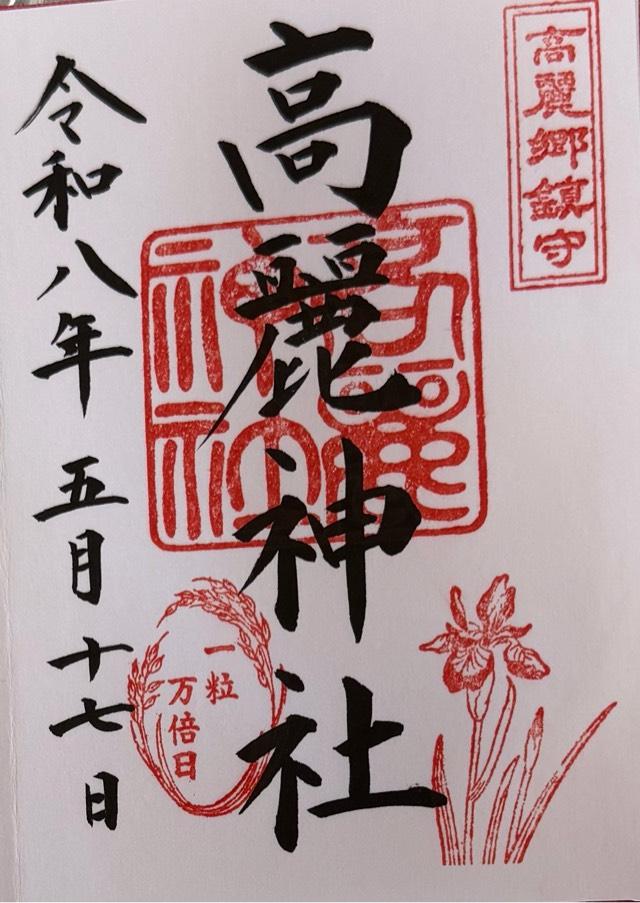 高麗郷鎮守
高麗神社
高麗神社
一粒
万倍日
令和八年 五月 十七日